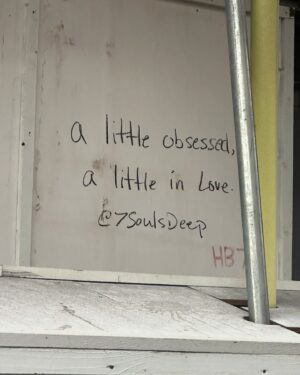 a little obsessed,
a little in Love.
@7SoulsDeep
HB7